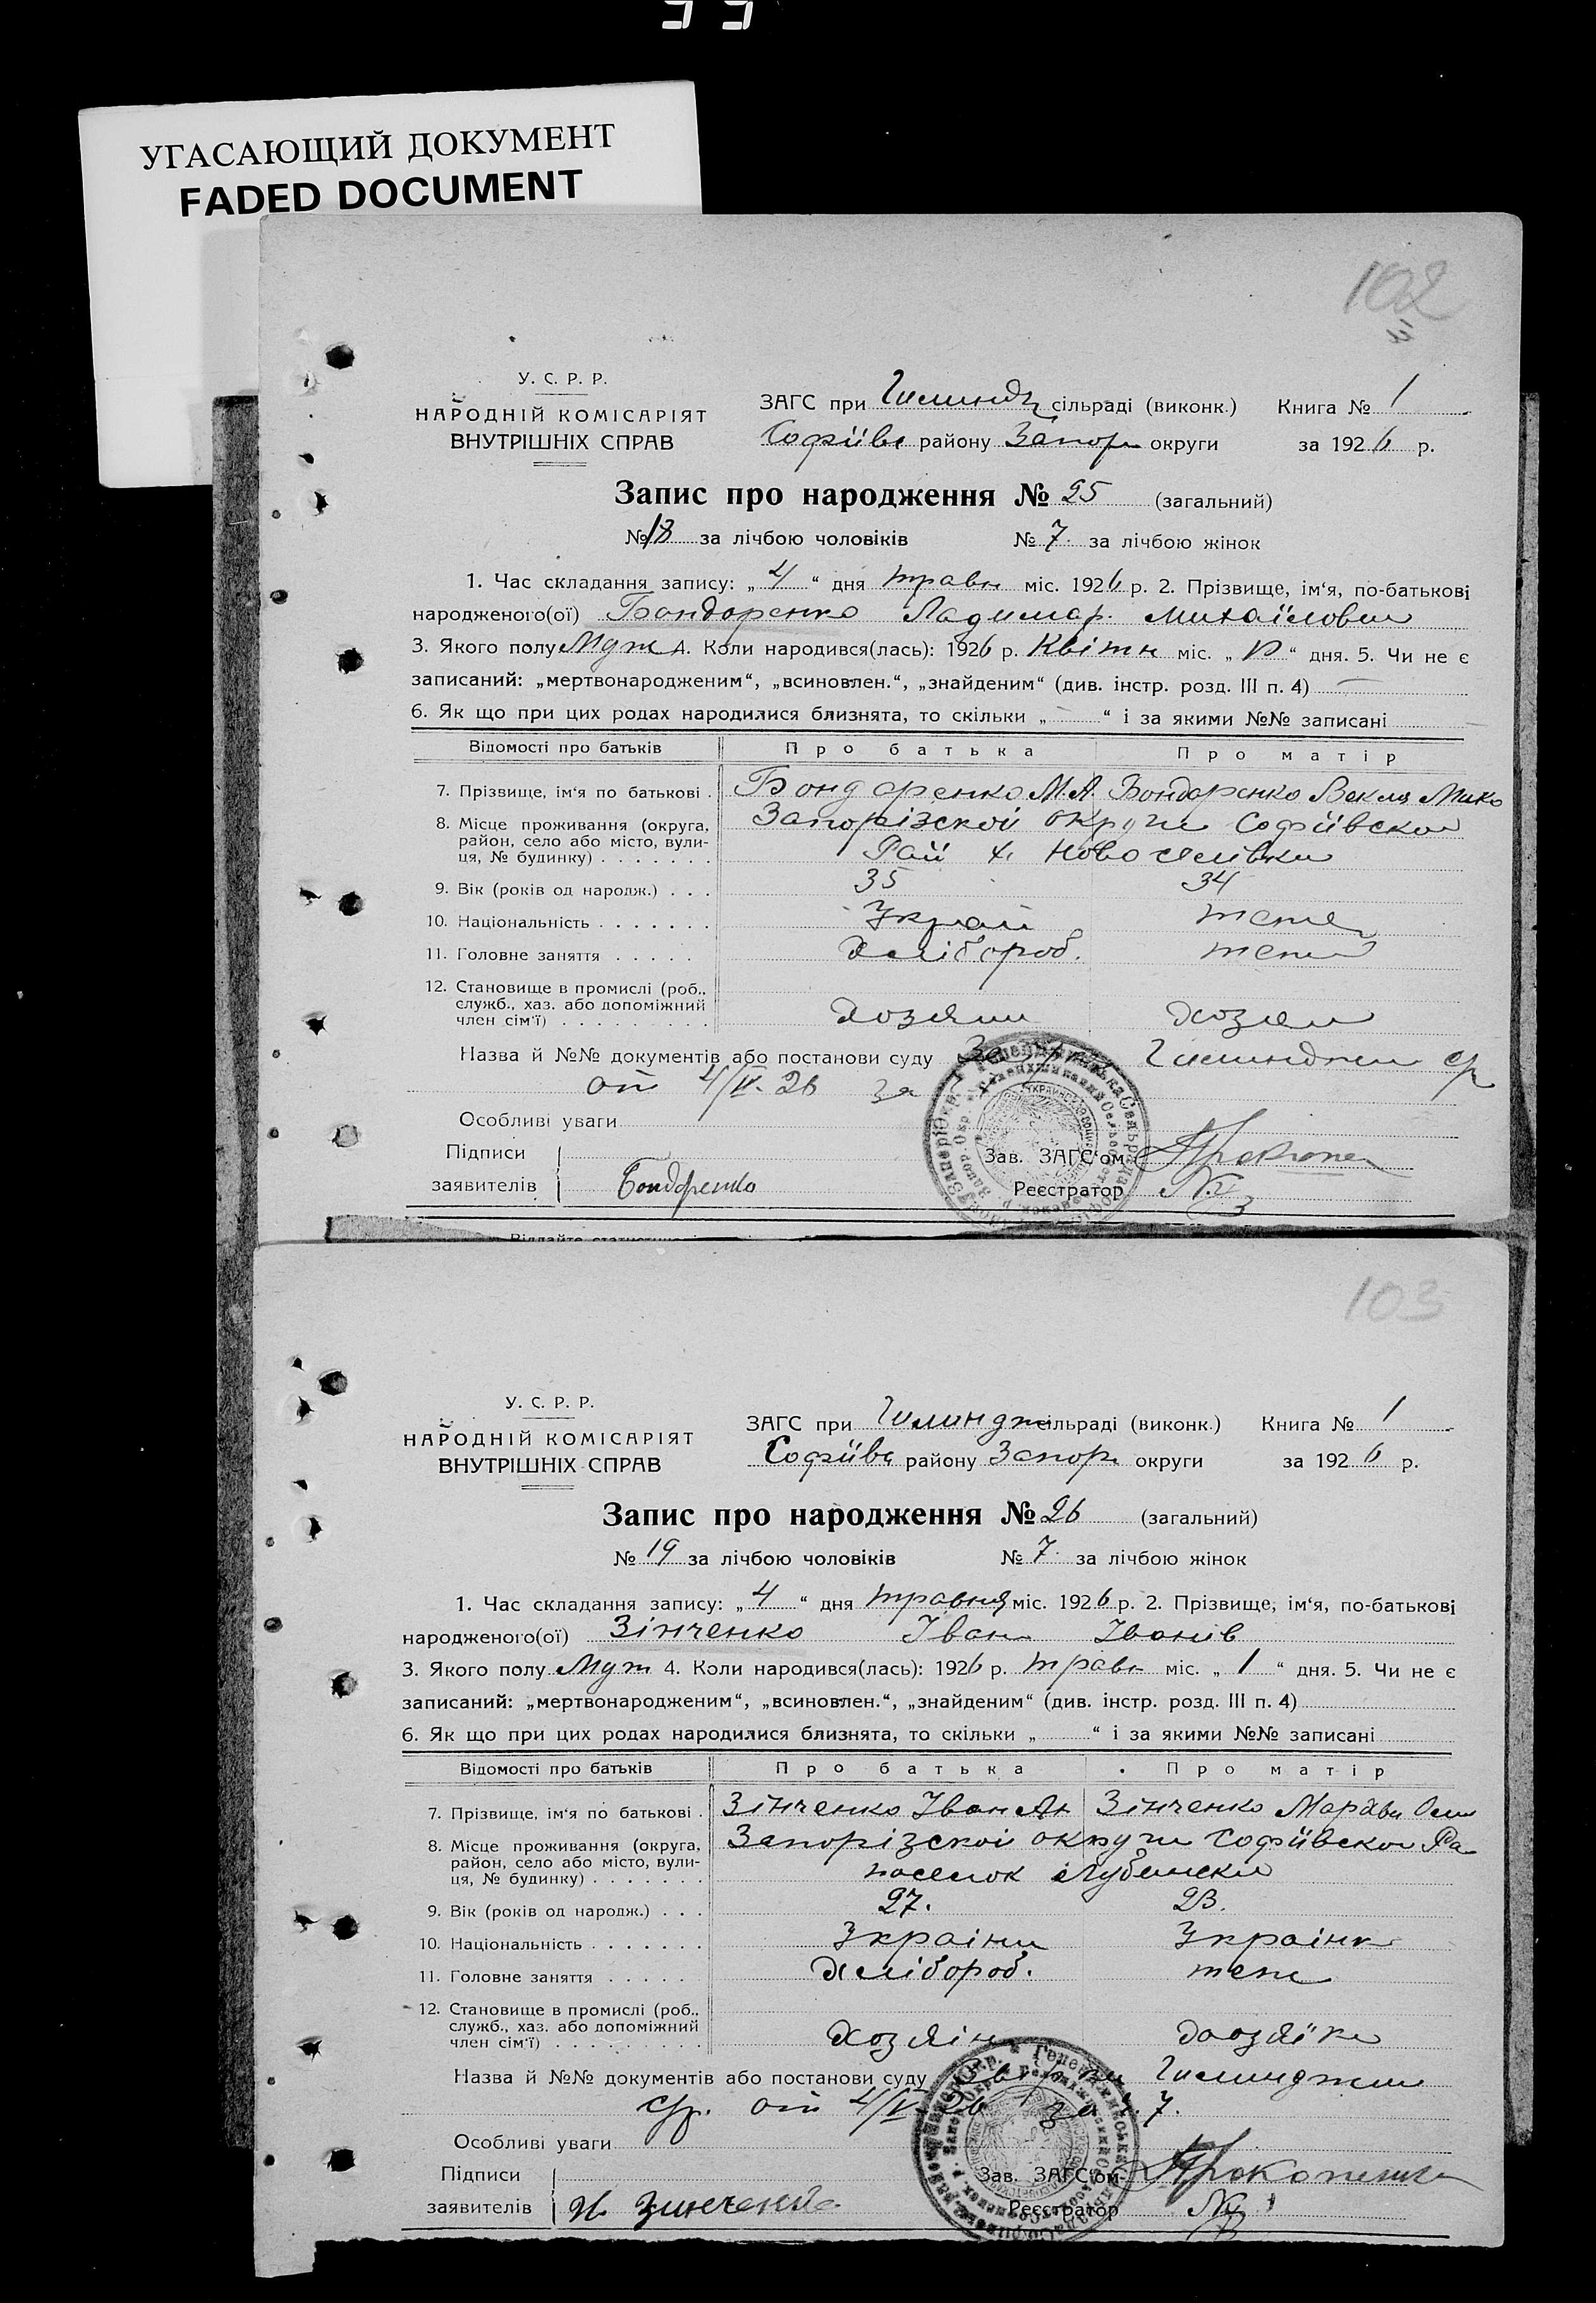 УГАСАЮЩИЙ ДОКУМЕНТ
FADED DOCUMENT
102
У. С. Р. Р.
НАРОДНІЙ КОМІСАРІЯТ
ВНУТРІШНІХ СПРАВ
ЗАГС при сільраді (виконк.) Книга № 1
Софіївс району Запор округи за 1926 р.
Запис про народження № 25 (загальний)
№ 18 за лічбою чоловіків № 7. за лічбою жінок
1. Час складання запису: „ 4 “ дня травн міс. 1926 р. 2. Прізвище, ім‘я, по-батькові
народженого(ої) Бондоренко Михаїлович
3. Якого полу Муж 4. Коли народився(лась): 1926 р. Квітн міс. „ “ дня. 5. Чи не є
записаний: „мертвонародженим“, „всиновлен.“, „знайденим“ (див. інстр. розд. III п. 4) —
6. Як що при цих родах народилися близнята, то скільки „ “ і за якими №№ записані
Відомості про батьків Про батька Про матір
7. Прізвище, ім‘я по батькові . Бондоренко М.А. Бондоренко Векла Мико
8. Місце проживання (округа, район, село або місто, вулиця, № будинку) Запорізской округи Софіївской
Рай х. Новоселівки
9. Вік (років од народж.) . . . 35 34
10. Національність Украй
11. Головне заняття Хлібороб.
12. Становище в промислі (роб., служб., хаз. або допоміжний член сім‘ї)
Назва й №№ документів або постанови суду
от 4/V-26 за
Особливі уваги
Підписи
заявителів Бондоренко
Зав. ЗАГС‘ом
Реєстратор
103
У. С. Р. Р.
НАРОДНІЙ КОМІСАРІЯТ
ВНУТРІШНІХ СПРАВ
ЗАГС при сільраді (виконк.) Книга № 1
Софіївс району Запор округи за 1926 р.
Запис про народження № 26 (загальний)
№ 19 за лічбою чоловіків № 7. за лічбою жінок
1. Час складання запису: „ 4 “ дня травня міс. 1926 р. 2. Прізвище, ім‘я, по-батькові
народженого(ої) Зінченко Іван Іванів
3. Якого полу Муж 4. Коли народився(лась): 1926 р. травн міс. „ 1 “ дня. 5. Чи не є
записаний: „мертвонародженим“, „всиновлен.“, „знайденим“ (див. інстр. розд. III п. 4)
6. Як що при цих родах народилися близнята, то скільки „ “ і за якими №№ записані
Відомості про батьків Про батька Про матір
7. Прізвище, ім‘я по батькові . Зінченко Іван Зінченко
8. Місце проживання (округа, район, село або місто, вулиця, № будинку) Запорізской округи Софіївской Ра
поселок
9. Вік (років од народж.) . . . 27. 23.
10. Національність України Українк
11. Головне заняття Хлібороб. теж
12. Становище в промислі (роб., служб., хаз. або допоміжний член сім‘ї) Хозяін Хозяїка
Назва й №№ документів або постанови суду
ср. от 4/V-26 за 7.
Особливі уваги
Підписи
заявителів И. Зинченко
Зав. ЗАГС‘ом
Реєстратор